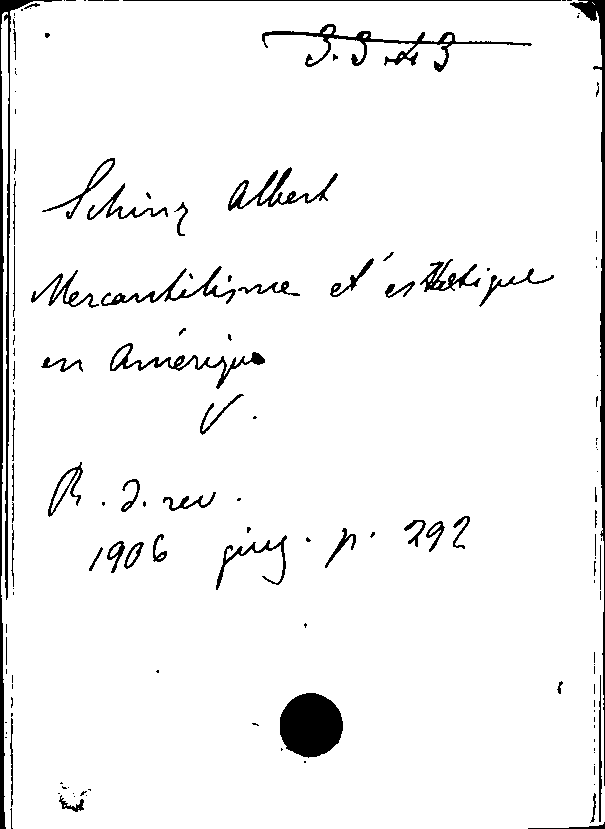 Schinz Albert
Mercantilisme et esthétique
en Amérique
V.
R. d. rev.
1906 giug. p. 292